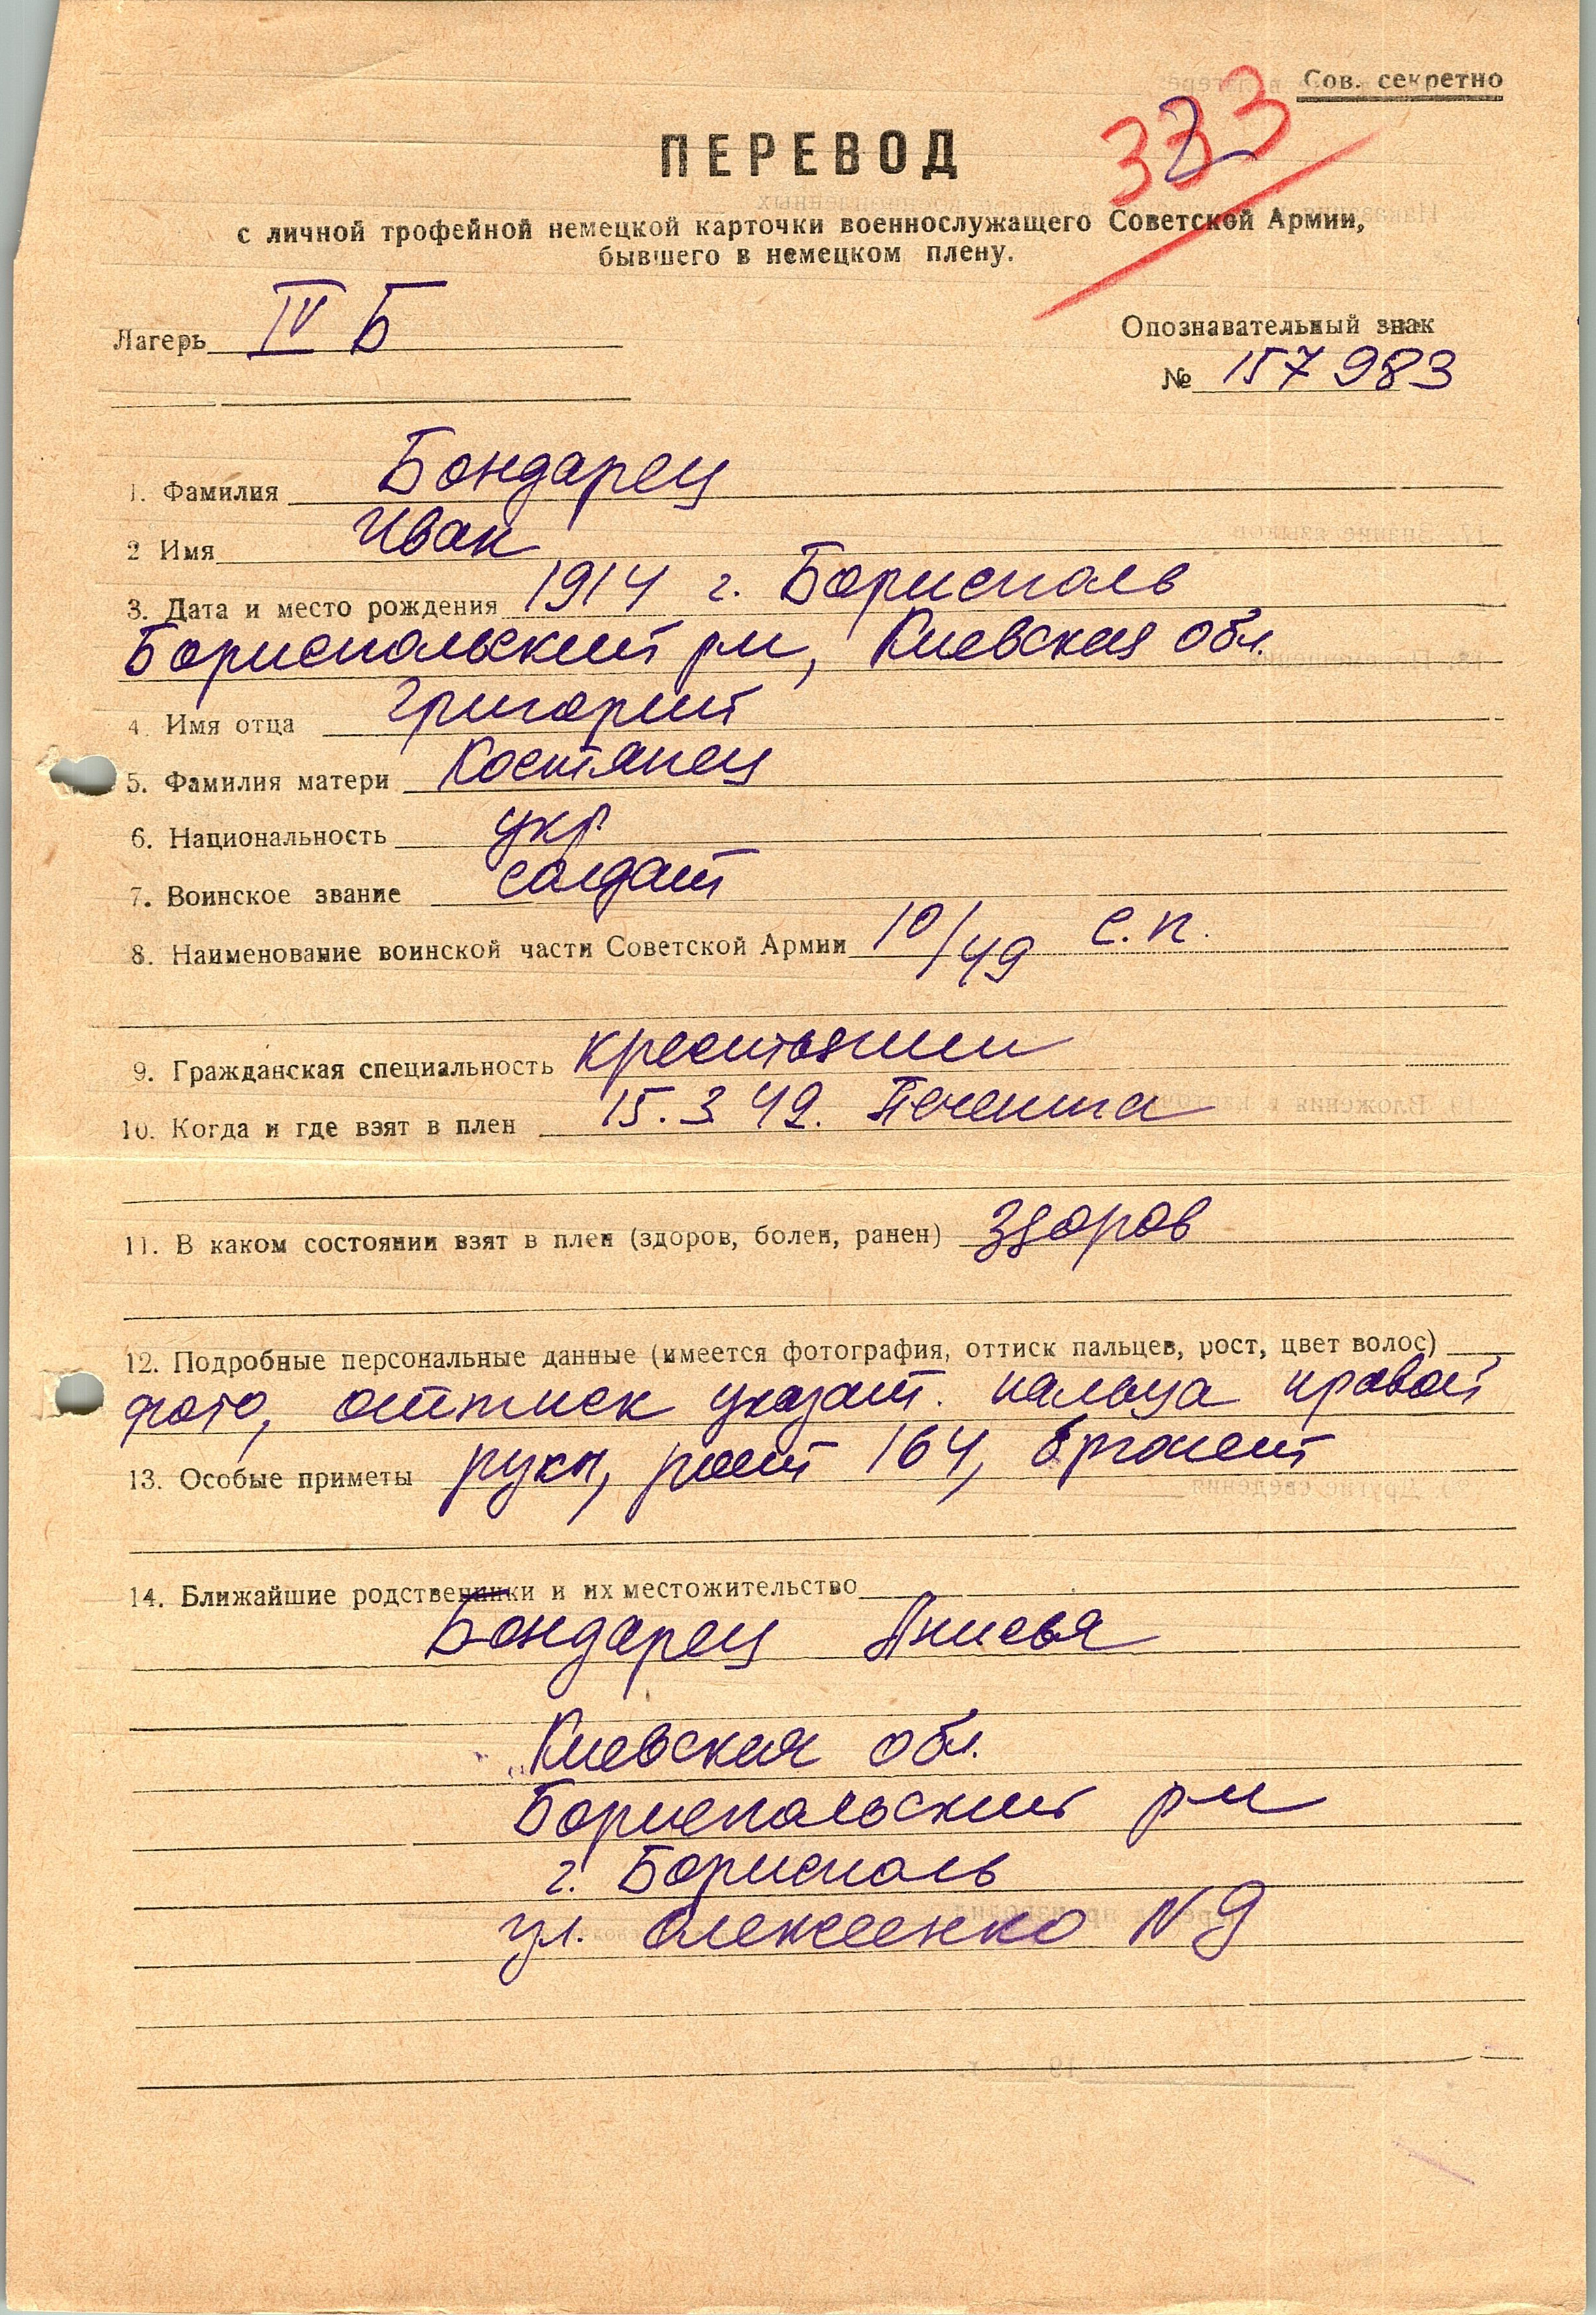 Сов. секретно
333
ПЕРЕВОД
с личной трофейной немецкой карточки военнослужащего Советской Армии,
бывшего в немецком плену.
Лагерь IV Б
Опознавательный знак
№ 157983
1. Фамилия Бондарец
2 Имя Иван
3. Дата и место рождения 1914 г. Борисполь
Бориспольский р-н, Киевская обл.
4. Имя отца Григорий
5. Фамилия матери Костянец
6. Национальность укр.
7. Воинское звание солдат
8. Наименование воинской части Советской Армии 10/49 с.п.
9. Гражданская специальность крестьянин
10. Когда и где взят в плен 15.3 42.
11. В каком состоянии взят в плен (здоров, болен, ранен) здоров
12. Подробные персональные данные (имеется фотография, оттиск пальцев, рост, цвет волос)
фото, оттиск указат. пальца правой
13. Особые приметы руки, рост 164, брюнет
14. Ближайшие родственники и их местожительство
Бондарец Анисья
Киевская обл.
Бориспольский р-н
г. Борисполь
ул. N 9